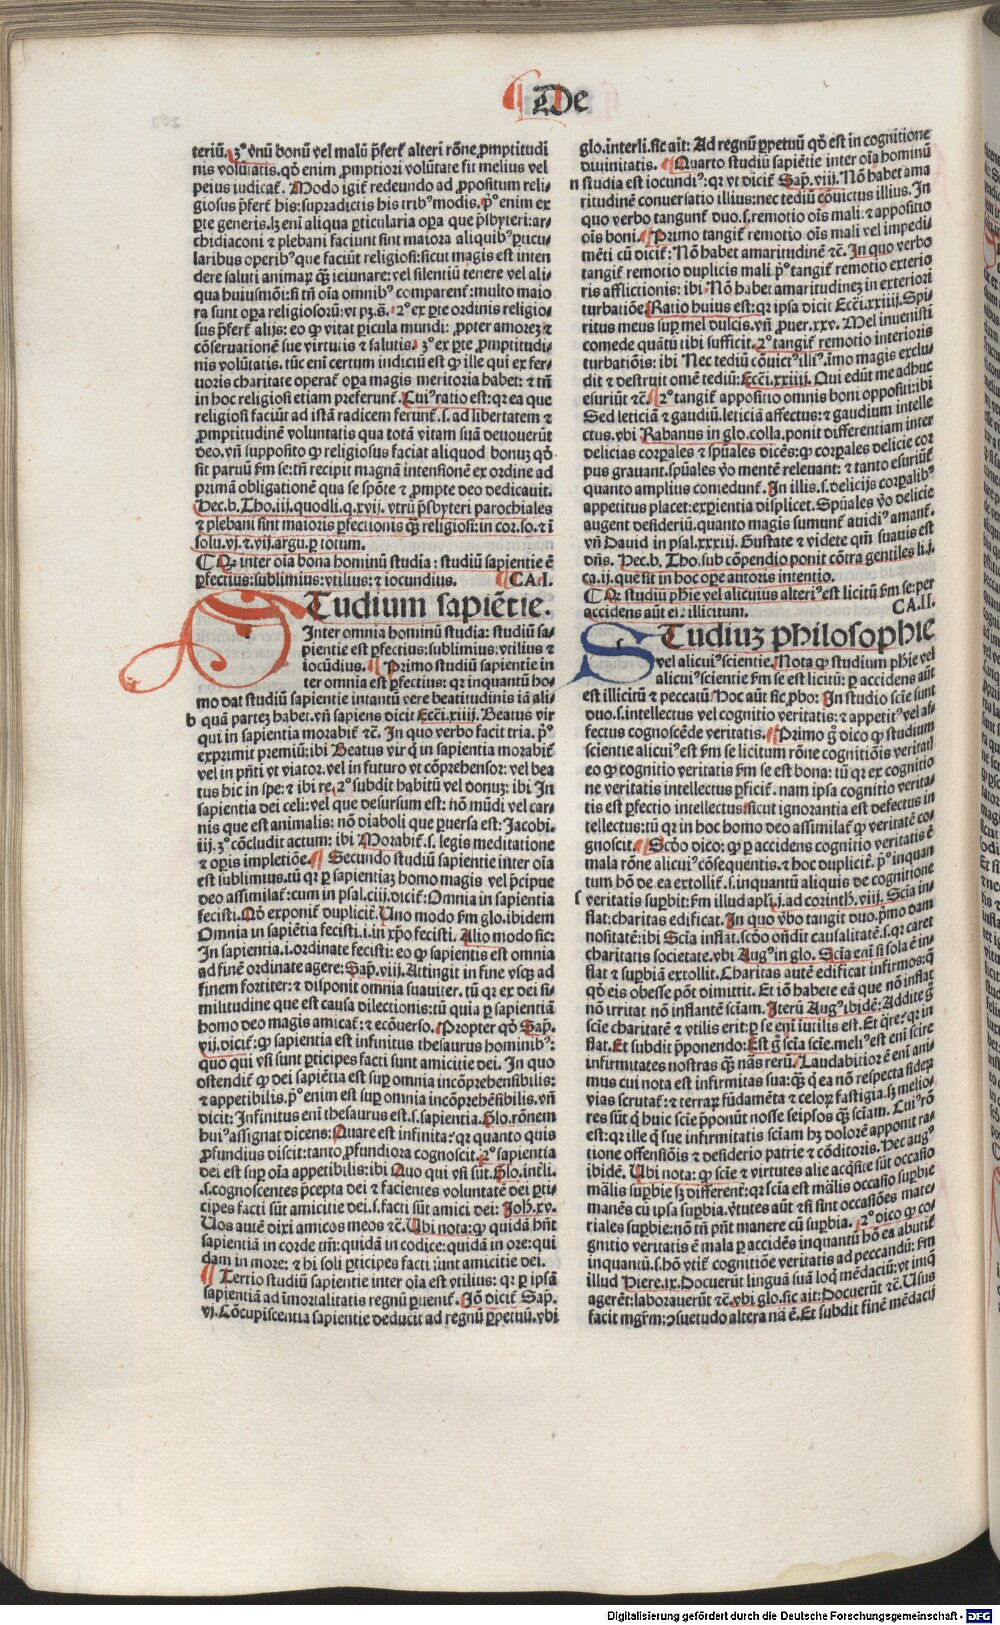 De
teriū. 3º vnū bonū vel malū p̄fert᷑ alteri rōne ꝓmptitudi
nis volūtatis. qd̛ enim ꝓmptiori volūtate fit melius vel
peius iudicat᷑. Modo igit᷑ redeundo ad ꝓpositum reli/
giosus p̄fert᷑ his: supradictis his tribꝰ modis. pº enim ex
ꝑte generis. lꝫ eni aliqua ꝑticularia oꝑa que p̄sbyteri: ar/
chidiaconi ⁊ plebani faciunt sint maiora aliquibꝰ ꝑticu/
laribus operibꝰ que faciūt religiosi: sicut magis est inten
dere saluti animaꝝ qȝ ieiunare: vel silentiū tenere vel ali/
qua huiusmōi: si tn̄ oīa omnibꝰ comparent᷑: multo maio
ra sunt oꝑa religiosorū: vt pꝫ.s̄. 2º ex ꝑte ordinis religio/
sus p̄fert᷑ alijs: eo ꝙ vitat ꝑicula mundi: ꝓpter amoreꝫ ⁊
cōseruationē sue virtutis ⁊ salutis. 3º ex ꝑte ꝓmptitudi/
nis volūtatis. tūc eni certum indiciū est ꝙ ille qui ex fer/
uoris charitate operat᷑ oꝑa magis meritoria habet: ⁊ tn̄
in hoc religiosi etiam preferunt᷑. Cuiꝰ ratio est: qꝛ ea que
religiosi faciūt ad istā radicem ferunt᷑.s. ad libertatem ⁊
ꝓmptitudinē voluntatis qua totā vitam suā deuouerūt
deo. vn̄ supposito ꝙ religiosus faciat aliquod bonuꝫ qd̛
sit paruū ẜm se: tn̄ recipit magnā intensionē ex ordine ad
primā obligationē qua se spōte ⁊ ꝓmpte deo dedicauit.
Hec.b. Tho.iij.quodli.q.xvij. vtrū p̄sbyteri parochiales
⁊ plebani sint maioris ꝑfectionis qȝ religiosi: in cor. so. ⁊ ī
solu.vj.⁊.vij.argu.ꝑ totum.
¶ Qꝛ inter oīa bona hominū studia: studiū sapientie ē
ꝑfectius: sublimius: vtilius: ⁊ iocundius. ¶ CA.I.
STudium sapiētie.
Inter omnia hominū studia: studiū sa/
pientie est ꝑfectius: sublimius: vtilius ⁊
iocūdius. ¶ Primo studiū sapientie in
ter omnia est ꝑfectius: qꝛ inquantū ho/
mo dat studiū sapientie intantū vere beatitudinis iā ali/
b quā parteꝫ habet. vn̄ sapiens dicit Ecci.xiiij. Beatus vir
qui in sapientia morabit᷑ ⁊c. In quo verbo facit tria. pº
exprimit premiū: ibi Beatus vir q̇ in sapientia morabit᷑
vel in pn̄ti vt viator. vel in futuro vt cōprehensor: vel bea
tus hic in spe: ⁊ ibi re. 2º subdit habitū vel donuꝫ: ibi In
sapientia dei celi: vel que desursum est: nō mūdi vel car/
nis que est animalis: nō diaboli que ꝑuersa est: Jacobi.
iij. 3º cōcludit actum: ibi Morabit᷑.s. legis meditatione
⁊ oꝑis impletiōe. ¶ Secundo studiū sapientie inter oīa
est sublimius. tū qꝛ ꝑ sapientiaꝫ homo magis vel p̄cipue
deo assimilat᷑: cum in psal.ciij. dicit᷑: Omnia in sapientia
fecisti. Qd̛ exponit᷑ duplicit᷑. Uno modo ẜm glo. ibidem
Omnia in sapiētia fecisti.i. in xp̄o fecisti. Alio modo sic:
In sapientia.i. ordinate fecisti: eo ꝙ sapientis est omnia
ad finē ordinate agere: Sap̄.viij. Attingit in fine vsqȝ ad
finem fortiter: ⁊ disponit omnia suauiter. tū qꝛ ex dei si/
militudine que est causa dilectionis: tū quia ꝑ sapientiā
homo deo magis amicat᷑: ⁊ ecōuerso. Propter qd̛ Sap̄.
vij. dicit᷑: ꝙ sapientia est infinitus thesaurus hominibꝰ:
quo qui vsi sunt ꝑticipes facti sunt amicitie dei. In quo
ostendit᷑ ꝙ dei sapiētia est suꝑ omnia incōprehensibilis:
⁊ appetibilis. pº enim est suꝑ omnia incōprehēsibilis. vn̄
dicit: Infinitus eni thesaurus est.s. sapientia. Glo. rōnem
huiꝰ assignat dicens: Quare est infinita? qꝛ quanto quis
ꝓfundius discit: tanto ꝓfundiora cognoscit. 2º sapientia
dei est suꝑ oīa appetibilis: ibi Quo qui vsi sūt. Glo. int̄li.
.s. cognoscentes p̄cepta dei ⁊ facientes voluntatē dei ꝑti/
cipes facti sūt amicitie dei.s. facti sūt amici dei: Joh̄.xv.
Uos autē dixi amicos meos ⁊c. Ubi nota: ꝙ quidā hn̄t
sapientiā in corde tm̄: quidā in codice: quidā in ore: qui
dam in more: ⁊ hi soli ꝑticipes facti sunt amicitie dei.
¶ Tertio studiū sapientie inter oīa est vtilius: qꝛ ꝑ ipsā
sapientiā ad īmortalitatis regnū ꝑuenit᷑. Jō dicit᷑ Sap̄.
vj. Cōcupiscentia sapientie deducit ad regnū ꝑpetuū. vbi
glo. interli. sic ait: Ad regnū ꝑpetuū qd̛ est in cognitione
diuinitatis. ¶ Quarto studiū sapiētie inter oīa hominū
n studia est iocundiꝰ: qꝛ vt dicit᷑ Sap̄.viij. Nō habet ama
ritudinē conuersatio illius: nec tediū cōuictus illius. In
quo verbo tangunt᷑ duo.s. remotio oīs mali: ⁊ appositio
oīs boni. ¶ Primo tangit᷑ remotio oīs mali vel impedi/
mēti cū dicit᷑: Nō habet amaritudinē ⁊c. In quo verbo
tangit᷑ remotio duplicis mali. pº tangit᷑ remotio exterio
ris afflictionis: ibi Nō habet amaritudineꝫ in exteriori
turbatiōe. Ratio huius est: qꝛ ipsa dicit Ecci.xxiiij. Spi/
ritus meus suꝑ mel dulcis. vn̄ ꝓuer.xxv. Mel inuenisti
comede quātū tibi sufficit. 2º tangit᷑ remotio interioris
turbatiōis: ibi Nec tediū cōuictꝰ illiꝰ. īmo magis exclu/
dit ⁊ destruit omē tediū: Ecci.xxiiij. Qui edūt me adhuc
esuriūt ⁊c. ¶ 2º tangit᷑ appositio omnis boni oppositi: ibi
Sed leticiā ⁊ gaudiū. leticiā affectus: ⁊ gaudium intelle
ctus. vbi Rabanus in glo. colla. ponit differentiam inter
delicias corꝑales ⁊ spūales dicēs: ꝙ corꝑales delicie cor
pus grauant. spūales v̊o mentē releuant: ⁊ tanto esuriūt᷑
quanto amplius comedunt᷑. In illis.s. delicijs corꝑalibꝰ
appetitus placet: exꝑientia displicet. Spūales v̊o delicie
augent desideriū. quanto magis sumunt᷑ auidiꝰ amant᷑.
vn̄ Dauid in psal.xxxiij. Gustate ⁊ videte qm̄ suauis est
dn̄s. Hec.b. Tho. sub cōpendio ponit cōtra gentiles li.j.
ca.ij. que sit in hoc oꝑe autoris intentio.
¶ Qꝛ studiū phīe vel alicuius alteriꝰ est licitū ẜm se: per
accidens aūt est illicitum. CA.II.
STudiuꝫ philosophie
vel alicuiꝰ scientie. Nota ꝙ studium phīe vel
alicuiꝰ scientie ẜm se est licitū: ꝑ accidens aūt
est illicitū ⁊ peccatū. Hoc aūt sic ꝓbo: In studio scīe sunt
duo.s. intellectus vel cognitio veritatis: ⁊ appetitꝰ vel af/
fectus cognoscēde veritatis. ¶ Primo g̊ dico ꝙ studium
scientie alicuiꝰ est ẜm se licitum rōne cognitiōis veritatꝭ
eo ꝙ cognitio veritatis ẜm se est bona: tū qꝛ ex cognitio
ne veritatis intellectus ꝑficit᷑. nam ipsa cognitio verita/
tis est ꝑfectio intellectus sicut ignorantia est defectus in
tellectus: tū qꝛ in hoc homo deo assimilat᷑ ꝙ veritatē co/
gnoscit. ¶ Scd̊o dico: ꝙ ꝑ accidens cognitio veritatis ē
mala rōne alicuiꝰ cōsequentis. ⁊ hoc duplicit᷑. pº inquan
tum hō de ea extollit᷑.s. inquantū aliquis de cognitione
f veritatis suꝑbit: ẜm illud apl̄i.j. ad corinth.viij. Scīa in/
flat: charitas edificat. In quo v̊bo tangit duo. p̄mo dam
nositatē: ibi Scīa inflat. scd̊o on̄dit causalitatē.s. qꝛ caret
charitatis societate. vbi Augꝰ in glo. Scīa eni si sola ē in/
flat ⁊ suꝑbiā extollit. Charitas autē edificat infirmos: q̇
qd̛ eis obesse pōt dimittit. Et iō habete eā que nō inflat
nō irritat nō inflantē sciam. Iterū Augꝰ ibidē: Addite g̊
scīe charitatē ⁊ vtilis erit: ꝑ se eni īutilis est. Et q̄re? qꝛ in
flat. Et subdit p̄ponendo: Est g̊ scīa scīe. meliꝰ est eni scire
infirmitates nostras qȝ nās rerū. Laudabilior ē eni ani/
mus cui nota est infirmitas sua: qȝ q̇ ea nō respecta sideꝝ
vias scrutat᷑: ⁊ terraꝝ fūdamēta ⁊ celoꝝ fastigia. sꝫ melio/
res sūt q̇ huic scīe p̄ponūt nosse seipsos qȝ sciam. Cuiꝰ rō
est: qꝛ ille q̇ sue infirmitatis sciam hꝫ dolorē apponit ra/
tione offensiōis ⁊ desiderio patrie ⁊ cōditoris. Hec augꝰ
ibidē. Ubi nota: ꝙ scīe ⁊ virtutes alie acq̇site sūt occasio
māl̄is suꝑbie sꝫ different᷑: qꝛ scīa est māl̄is occasio suꝑbie
manēs cū ipsa suꝑbia. v̇tutes aūt ⁊si sint occasiōes mate/
riales suꝑbie: nō tn̄ pn̄t manere cū suꝑbia. 2º dico ꝙ co/
gnitio veritatis ē mala ꝑ accidēs inquantū hō ea abutit᷑
inquantū.s. hō vtit᷑ cognitiōe veritatis ad peccandū: ẜm
illud Hiere.ix. Docuerūt linguā suā loq̇ mēdaciū: vt iniq̇
agerēt: laborauerūt ⁊c. vbi glo. sic ait: Docuerūt ⁊c. Usus
facit mgr̄m: ↄsuetudo altera nā ē. Et subdit finē mēdacij
Digitalisierung gefördert durch die Deutsche Forschungsgemeinschaft - DFG